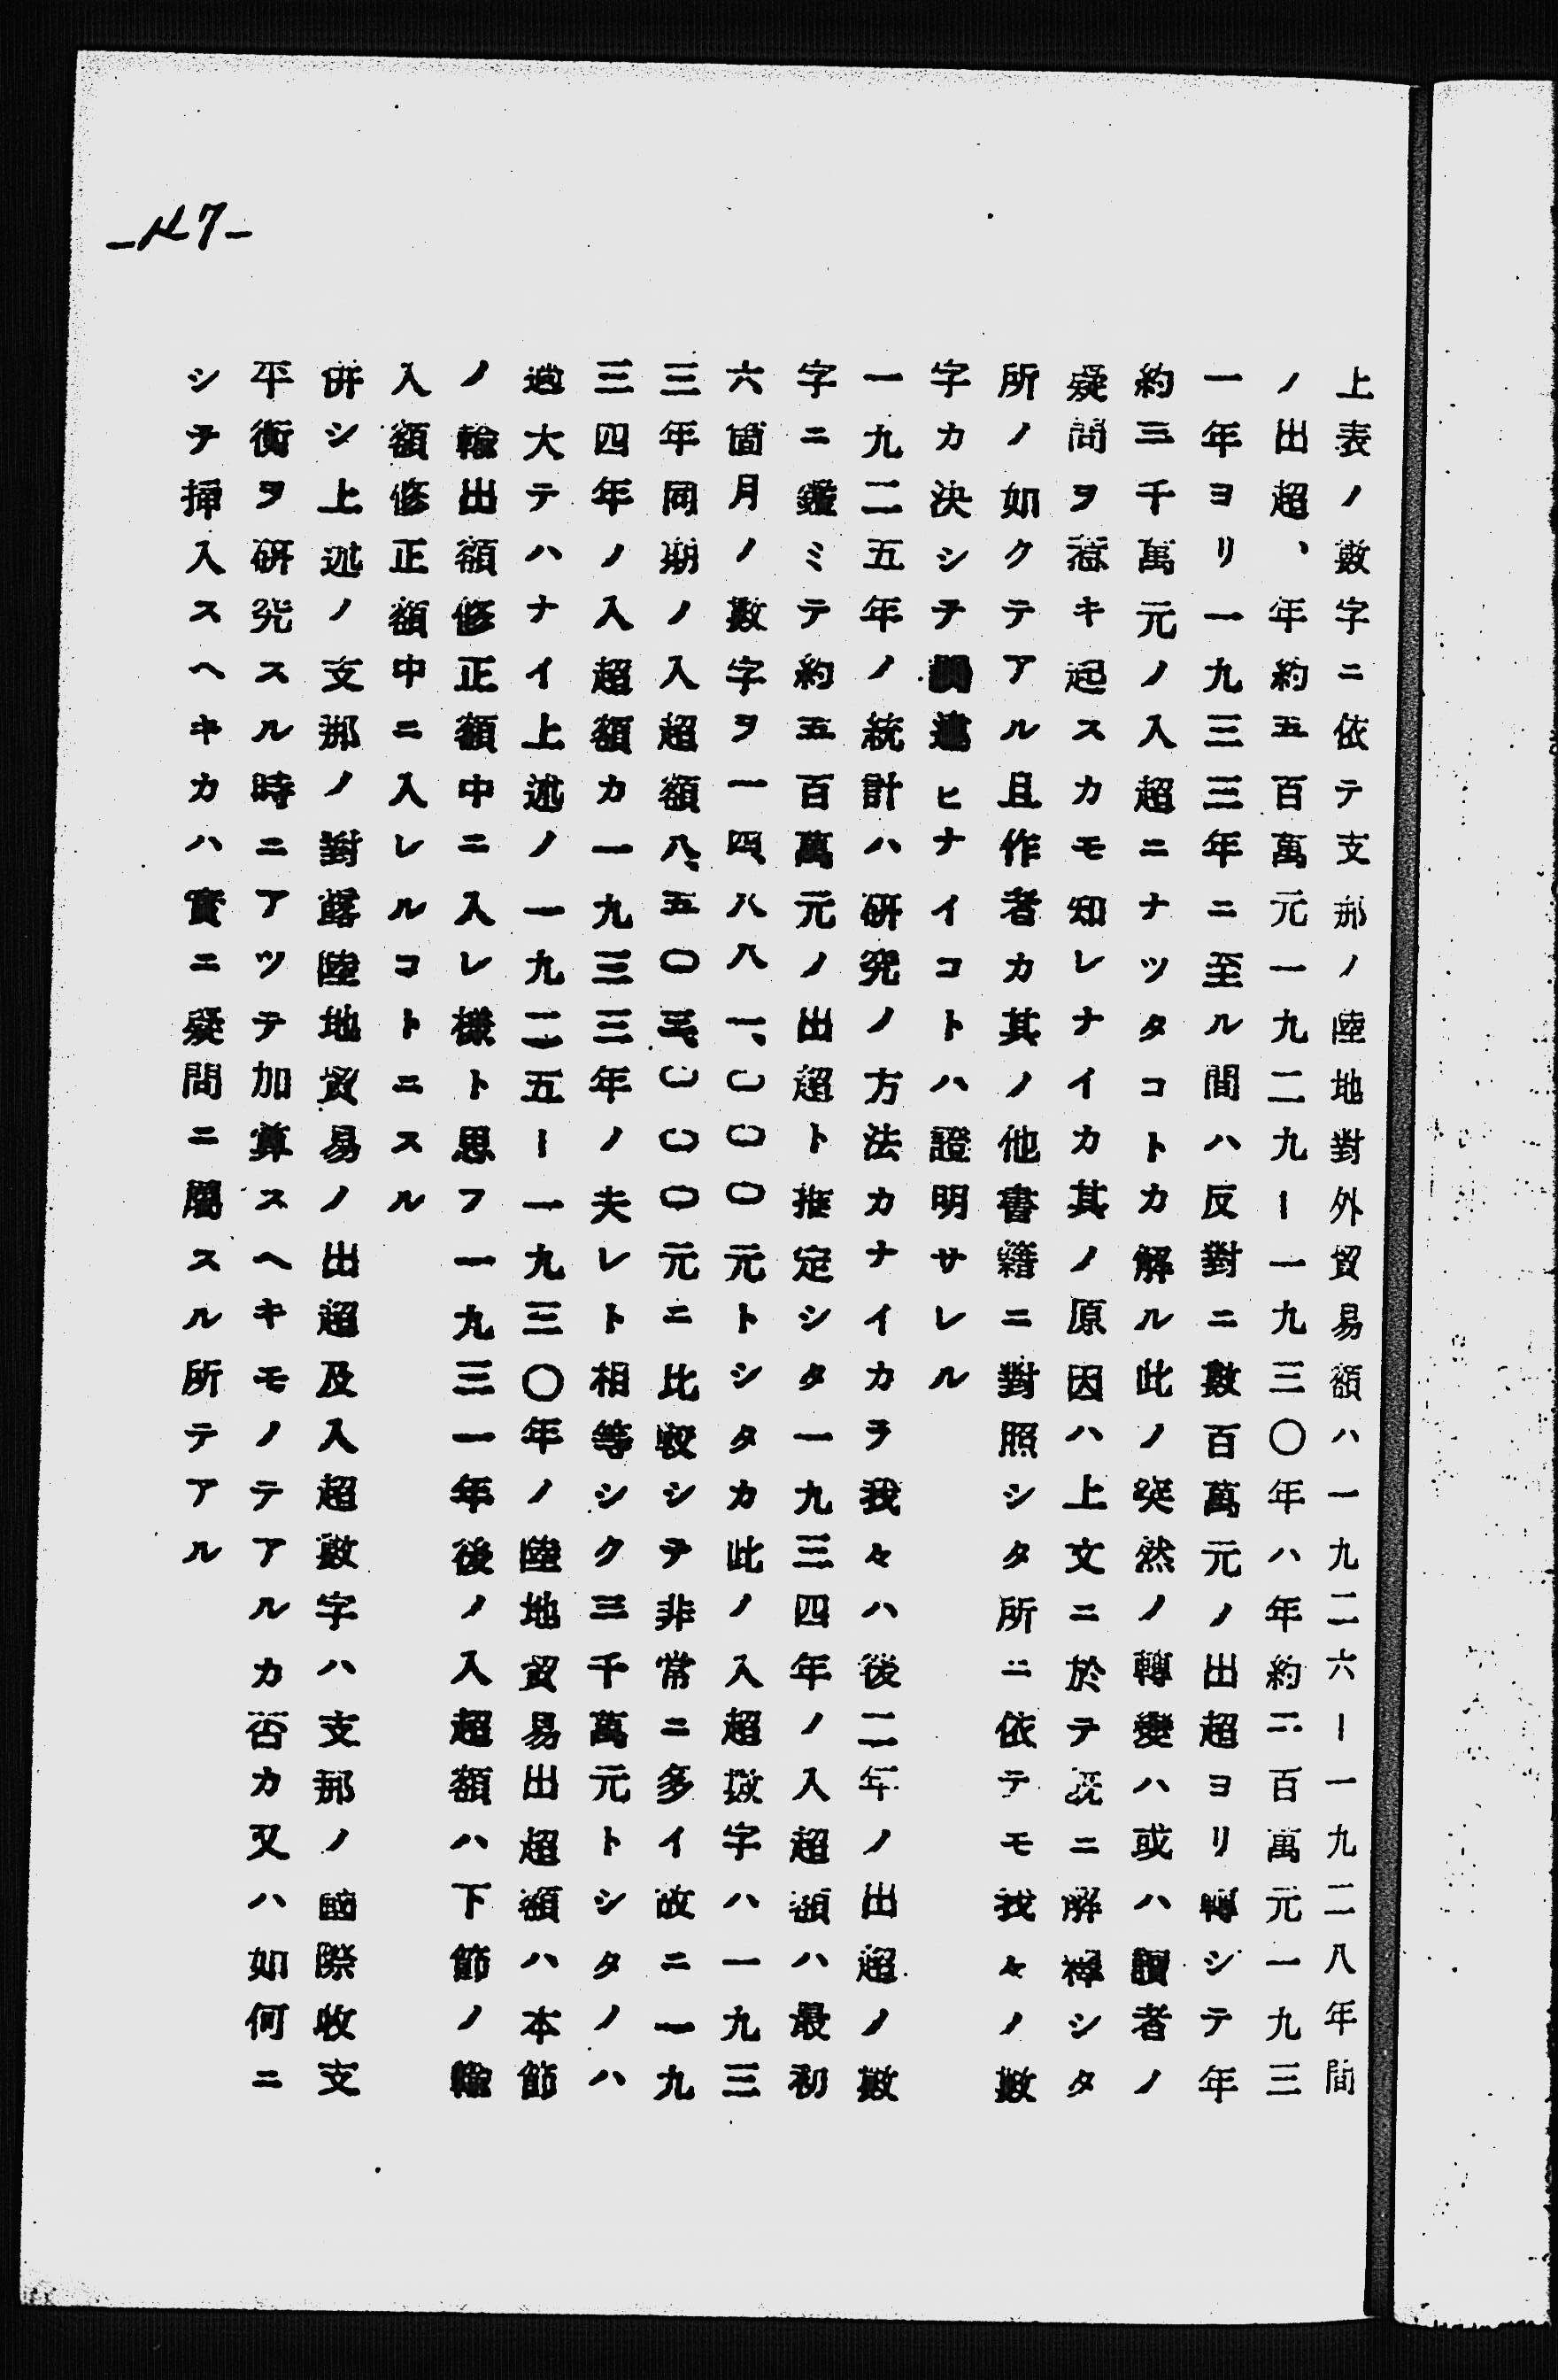 -47-
上表ノ數字ニ依テ支那ノ陸地對外貿易額ハ一九二六ー一九二八年間
ノ出超、年約五百萬元一九二九ー一九三〇年ハ年約二百萬元一九三
一年ヨリ一九三三年ニ至ル間ハ反對ニ數百萬元ノ出超ヨリ轉シテ年
約三千萬元ノ入超ニナツタコトカ解ル此ノ突然ノ轉變ハ或ハ讀者ノ
疑問ヲ惹キ起スカモ知レナイカ其ノ原因ハ上文ニ於テ既ニ解釋シタ
所ノ如クテアル且作者カ其ノ他書籍ニ對照シタ所ニ依テモ我々ノ數
字カ決シテ間違ヒナイコトハ證明サレル
一九二五年ノ統計ハ研究ノ方法カナイカラ我々ハ後二年ノ出超ノ數
字ニ鑑ミテ約五百萬元ノ出超ト推定シタ一九三四年ノ入超額ハ最初
六箇月ノ數字ヲ一四、八八一、〇〇〇元トシタカ此ノ入超數字ハ一九三
三年同期ノ入超額八、五〇三、〇〇〇元ニ比較シテ非常ニ多イ故ニ一九
三四年ノ入超額カ一九三三年ノ夫レト相等シク三千萬元トシタノハ
過大テハナイ上述ノ一九二五ー一九三〇年ノ陸地貿易出超額ハ本節
ノ輸出額修正額中ニ入レ様ト思フ一九三一年後ノ入超額ハ下節ノ輸
入額修正額中ニ入レルコトニスル
併シ上述ノ支那ノ對露陸地貿易ノ出超及入超數字ハ支那ノ國際收支
平衡ヲ研究スル時ニアツテ加算スヘキモノテアルカ否カ又ハ如何ニ
シテ挿入スヘキカハ實ニ疑問ニ屬スル所テアル